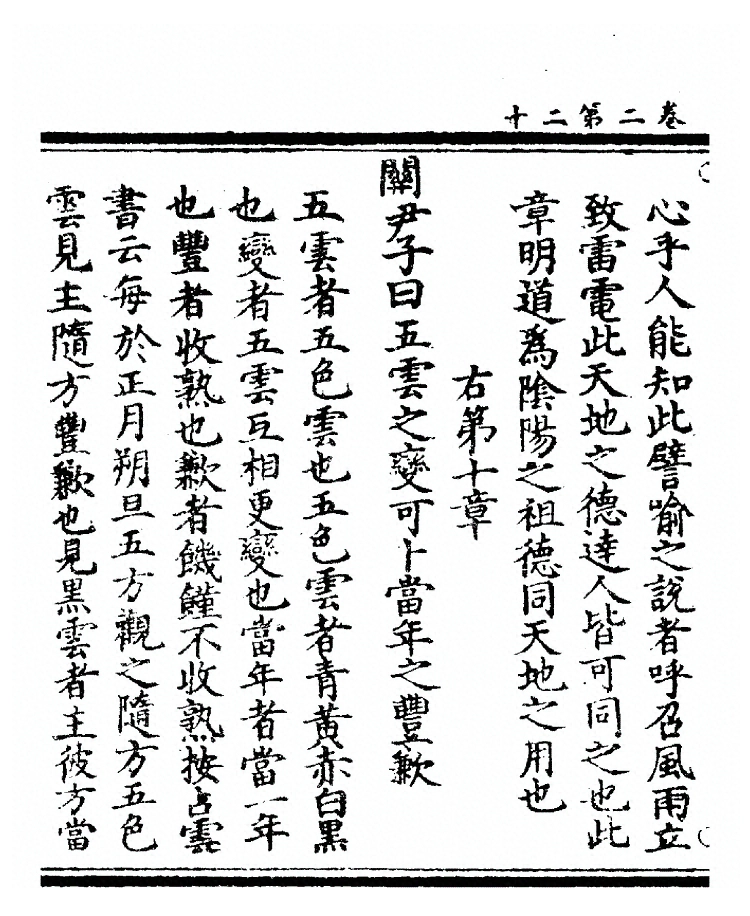 卷二第二十
心乎人能知此譬喻之說者呼召風雨立
致雷電此天地之德達人皆可同之也此
章明道為陰陽之祖德同天地之用也
右第十章
關尹子曰五雲之變可卜當年之豐歉
五雲者五色雲也五色雲者青黃赤白黑
也變者五雲互相更變也當年者當一年
也豐者收熟也歉者饑饉不收熟按占雲
書云每於正月朔旦五方觀之隨方五色
雲見主隨方豐歉也見黑雲者主彼方當